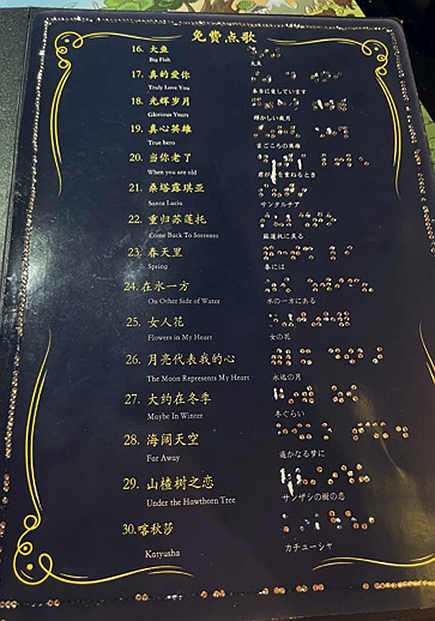 免费点歌
16. 大鱼
Big Fish
大魚
17. 真的爱你
Truly Love You
本当に愛しています
18. 光辉岁月
Glorious Years
輝かしい歳月
19. 真心英雄
True hero
まごころの英雄
20. 当你老了
When you are old
を重ねるとき
21. 桑塔露琪亚
Santa Lucia
サンタルチア
22. 重归苏莲托
Come Back To Sorrento
蘇蓮托に戻る
23. 春天里
Spring
春には
24.在水一方
On Other Side of Water
水の一方にある
25. 女人花
Flowers in My Heart
女の花
26. 月亮代表我的心
The Moon Represents My Heart
永远の月
27. 大约在冬季
Maybe In Winter
冬ぐらい
28. 海阔天空
Far Away
遥かなる夢に
29. 山楂树之恋
Under the Hawthorn Tree
サンザシの樹の恋
30.喀秋莎
Katyusha
カチューシャ